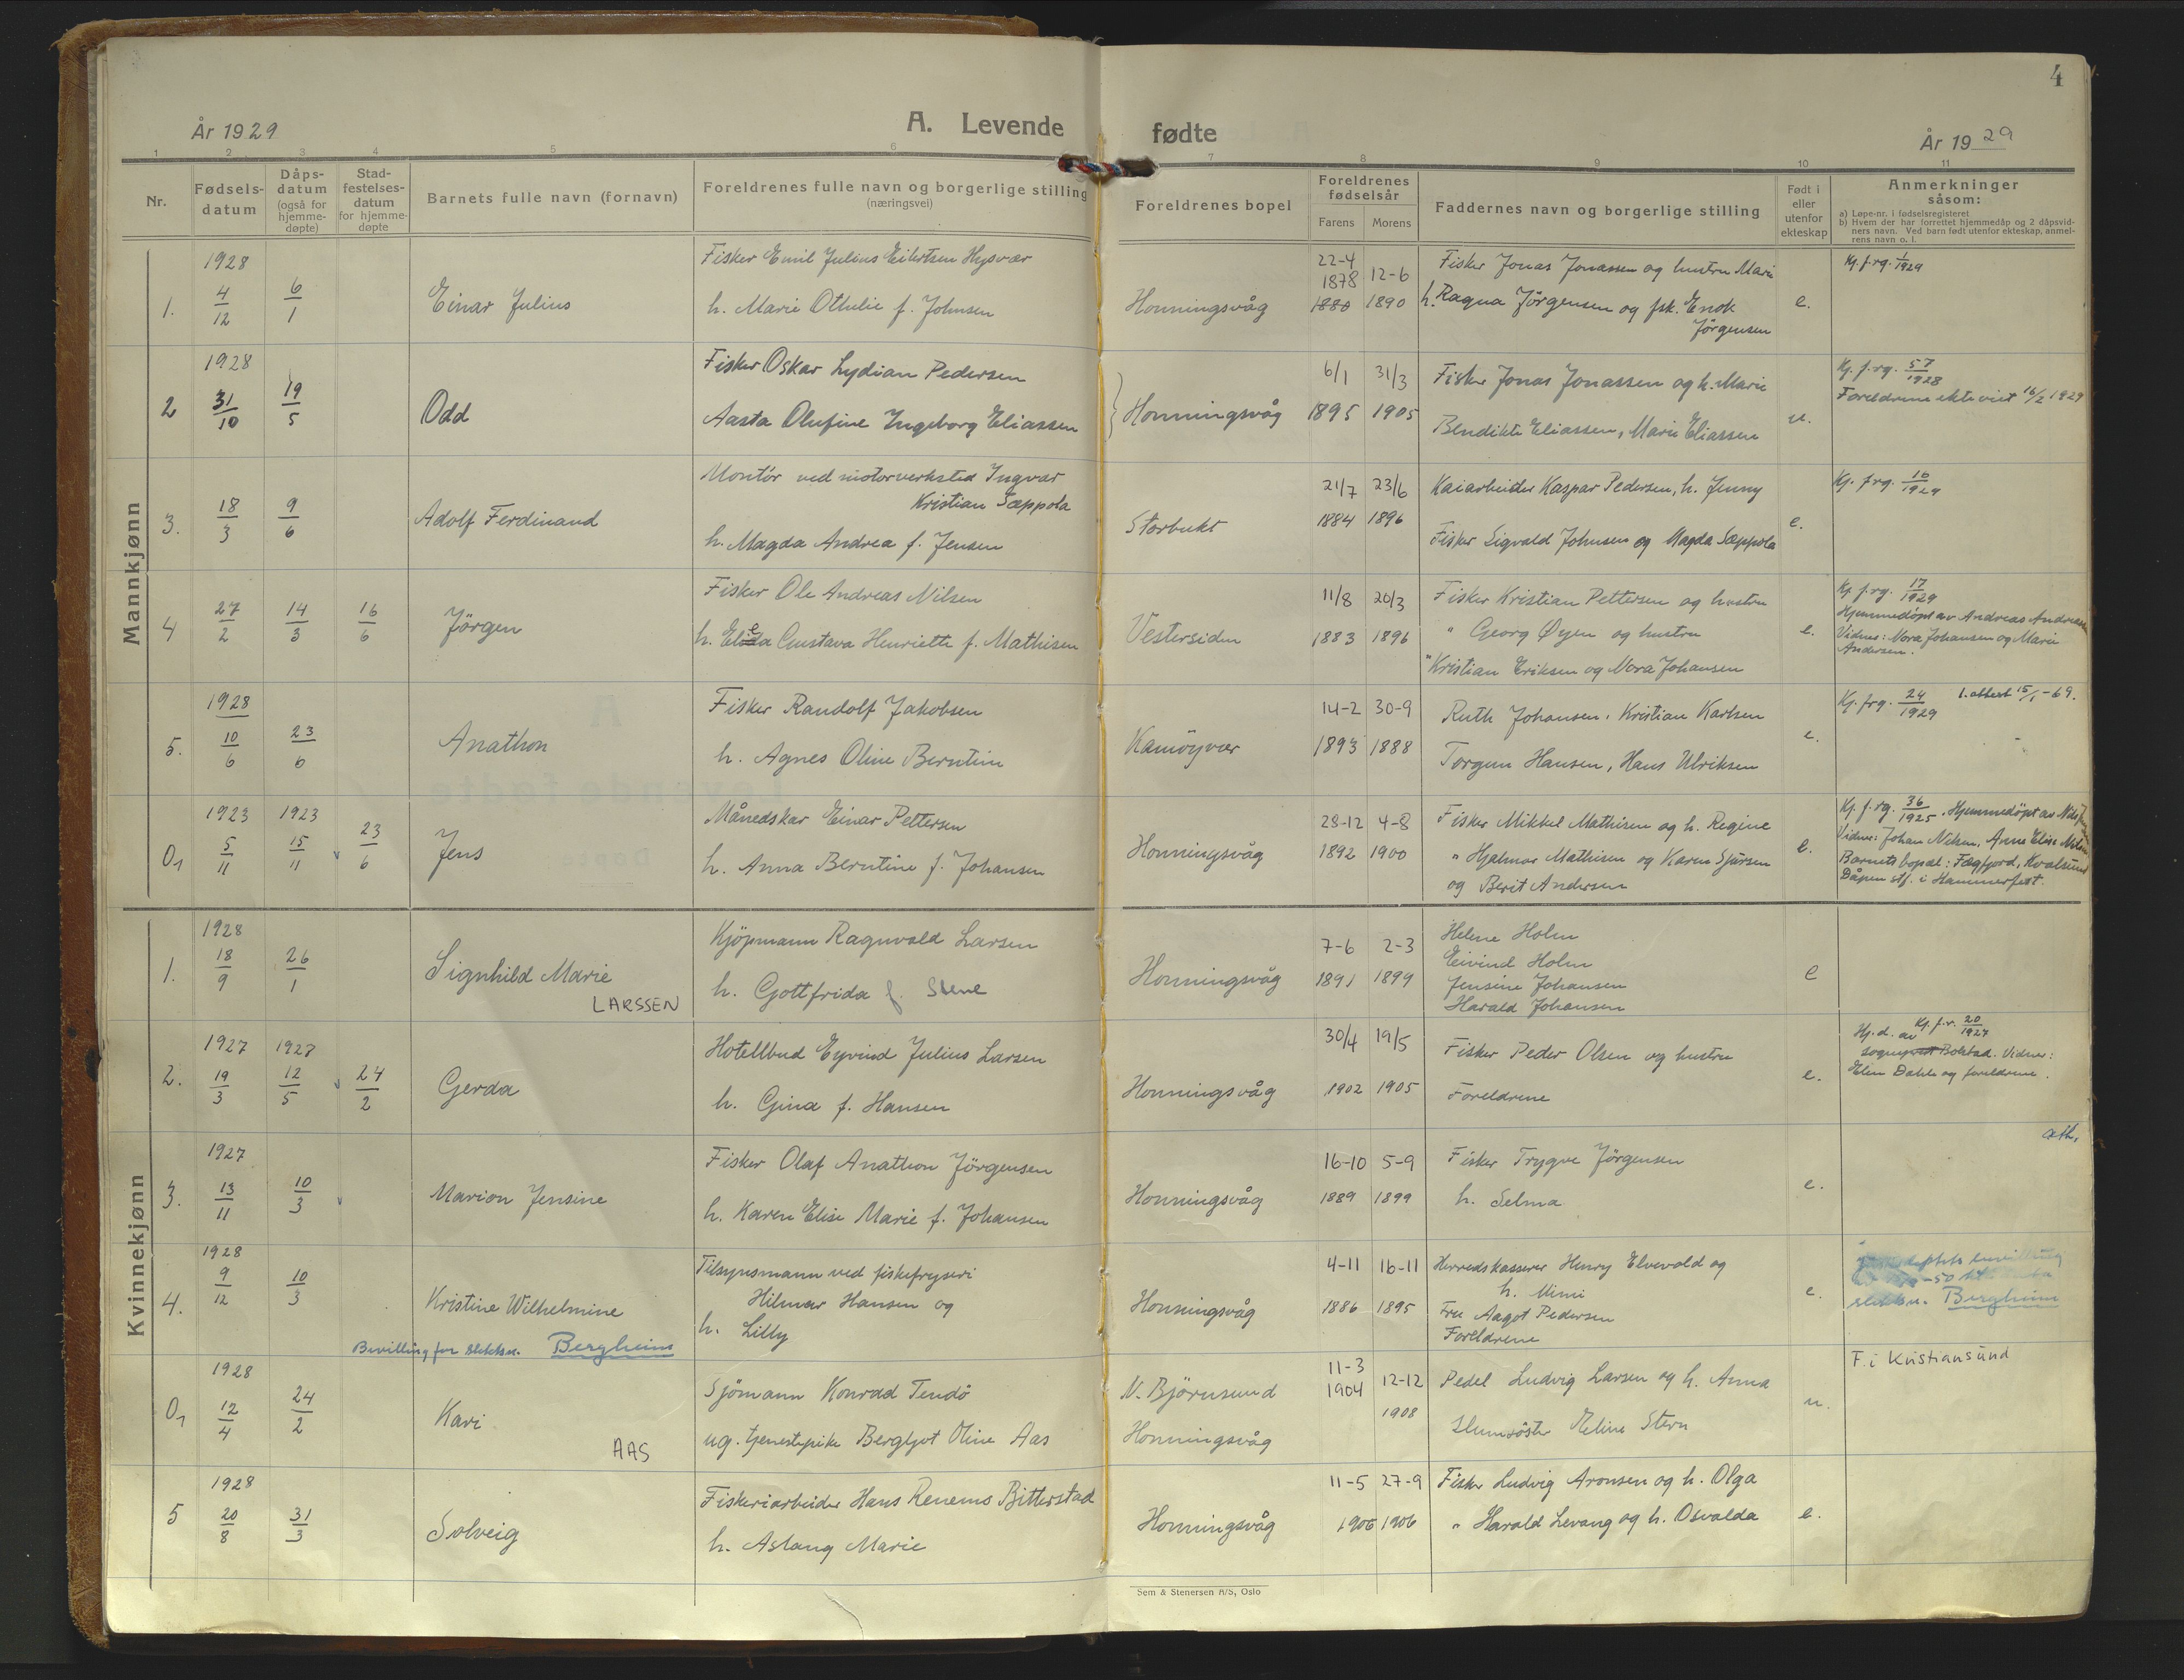 4
År 1929
A. Levende fødte
År 1929
1 2 3 4 5 6 7 8 9 10 11
Nr.
Fødsels-
datum
Dåps-
datum
(også for
hjemme-
døpte)
Stad-
festelses-
datum
for hjemme-
døpte
Barnets fulle navn (fornavn)
Foreldrenes fulle navn og borgerlige stilling
(næringsvei)
Foreldrenes bopel
Foreldrenes
fødselsår
Farens Morens
Faddernes navn og borgerlige stilling
Født i
eller
utenfor
ekteskap
Anmerkninger
såsom:
a) Løpe-nr. i fødselsregisteret
b) Hvem der har forrettet hjemmedåp og 2 dåpsvid-
ners navn. Ved barn født utenfor ekteskap, anmel-
rens navn o. l.
Mannkjønn
1.
1928
4/12
6/1
Einar Julius
Fisker Emil Julius Eilertsen Hysvær
h. Marie Othelie f. Johnsen
Honningsvåg
22-4
1878
1880
12-6
1890
Fisker Jonas Jonassen og hustru Marie
h. Ragna Jörgensen og fsk. Enok
Jörgensen
e.
Kj. f. rg. 1/1929
2
1928
31/10
19/5
Odd
Fisker Oskar Lydian Pedersen
Aasta Olufine Ingeborg Eliassen
Honningsvåg
6/1 31/3
1895 1905
Fisker Jonas Jonassen og h. Marie
Bendikte Eliassen, Marie Eliassen
u.
Kj. f. rg. 57/1928
Foreldrene ekteviet 16/2 1929
3.
18/3
9/6
Adolf Ferdinand
Montör ved motorverksted Ingvar
Kristian Sæppola
h. Magda Andrea f. Jensen
Storbukt
21/7 23/6
1884 1896
Kaiarbeider Kaspar Pedersen, h. Jenny
Fisker Sigvald Johnsen og Magda Sæppola
e.
Kj. f rg. 16/1929
4
27/2
14/3
16/6
Jörgen
Fisker Ole Andreas Nilsen
h. Elea Gustava Henriette f. Mathisen
Vestersiden
11/8 20/3
1883 1896
Fisker Kristian Pettersen og hustru
" Georg Øyen og hustru
" Kristian Eriksen og Nora Johansen
e.
Kj. f. rg. 17/1929
Hjemmedöpt av Andreas Andresen
Vidner: Nora Johansen og Marie
Andersen.
5.
1928
10/6
23/6
Anathon
Fisker Randolf Jakobsen
h. Agnes Oline Berntine
Kamöyvær
14-2 30-9
1893 1888
Ruth Johansen, Kristian Karlsen
Torgun Hansen, Hans Ulriksen
e.
Kj. f rg. 24/1929 1. attest 15/1-69.
01
1923
5/11
1923
15/11
23/6
Jens
Månedskar Einar Pettersen
h. Anna Berntine f. Johansen
Honningsvåg
28-12 4-8
1892 1900
Fisker Mikkel Mathisen og h. Regine
" Hjalmar Mathisen og Karen Sjursen
og Berit Andersen
e.
Kj. f. rg. 36/1925. Hjemmedöpt av Nils
Vidner: Johan Nilsen, Anne Elise Nilsen
Barnets bopæl: Fægfjord, Kvalsund
Dåpen stf. i Hammerfest.
Kvinnekjønn
1.
1928
18/9
26/1
Signhild Marie
LARSSEN
Kjöpmann Ragnvald Larsen
h. Gottfrida f. Stene
Honningsvåg
7-6 2-3
1891 1899
Helene Holm
Eivind Holm
Jensine Johansen
Harald Johansen
e
2.
1927
19/3
1927
12/5
24/2
Gerda
Hotellbud Eyvind Julius Larsen
h. Gina f. Hansen
Honningsvåg
30/4 19/5
1902 1905
Fisker Peder Olsen og hustru
Foreldrene
e.
Hj. d. av Kj. f. r. 20/1927
sogneprest Bolstad. Vidner:
Elen Dahle og foreldrene.
3.
1927
13/11
10/3
Marion Jensine
Fisker Olaf Anathon Jörgensen
h. Karen Elise Marie f. Johansen
Honningsvåg
16-10 5-9
1889 1899
Fisker Trygve Jörgensen
h. Selma
e.
4.
1928
9/12
10/3
Kristine Wilhelmine
Bevilling for slektsn. Bergheim
Tilsynsmann ved fiskefryseri
Hilmar Hansen og
h. Lilly
Honningsvåg
4-11 16-11
1886 1895
Herredskasserer Henry Elvevold og
h. Mimi
Fru Aagot Pedersen
Foreldrene
e.
slektsn. Bergheim
01
1928
12/4
24/2
Kari
AAS
Sjömann Konrad Tendö
ug. tjenestepike Bergljot Oline Aas
N. Björnsund
Honningsvåg
11-3
1904
12-12
1908
Pedel Ludvig Larsen og h. Anna
Slumsöster Eline Stern
u.
F. i Kristiansund
5
1928
20/8
31/3
Solveig
Fiskeriarbeider Hans Renems Bitterstad
h. Aslaug Marie
Honningsvåg
11-5 27-9
1905 1906
Fisker Ludvig Aronsen og h. Olga
" Harald Levang og h. Osvalda
e.
Sem & Stenersen A/S, Oslo